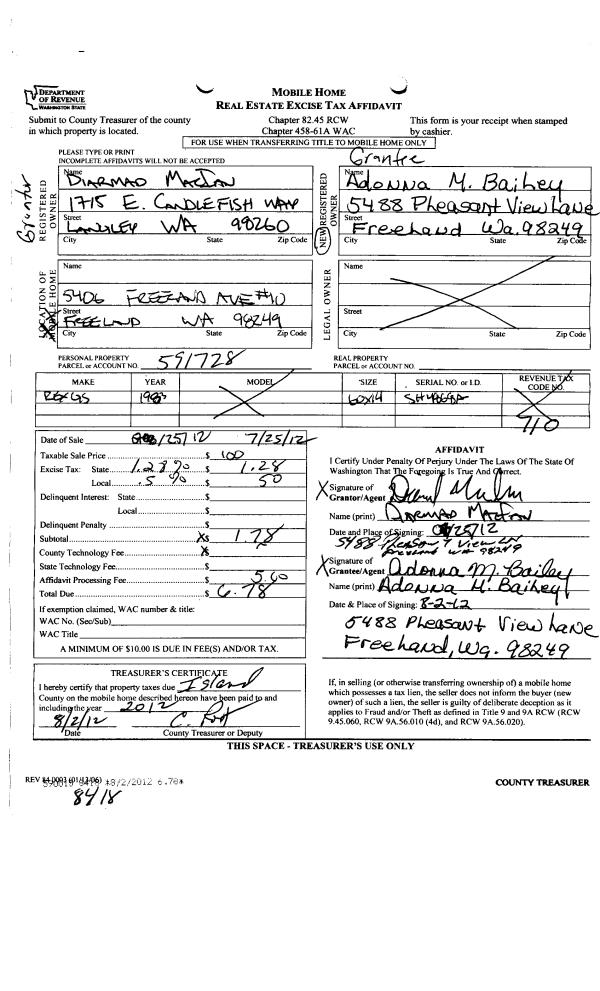 DEPARTMENT
OF REVENUE
WASHINGTON STATE
MOBILE HOME
REAL ESTATE EXCISE TAX AFFIDAVIT
Submit to County Treasurer of the county
in which property is located.
Chapter 82.45 RCW
Chapter 458-61A WAC
This form is your receipt when stamped
by cashier.
FOR USE WHEN TRANSFERRING TITLE TO MOBILE HOME ONLY
PLEASE TYPE OR PRINT
INCOMPLETE AFFIDAVITS WILL NOT BE ACCEPTED
Grantor
REGISTERED
OWNER
Name
DIARMAD
1715 E. CANDLEFISH WAY
Street
LANGLEY WA 98260
City State Zip Code
Grantee
NEW REGISTERED
OWNER
Name
Adonna M. Bailey
5488 Pheasant View Lane
Street
Freeland Wa. 98249
City State Zip Code
LOCATION OF
MOBILE HOME
Name
5406 FREELAND AVE #10
Street
FREELAND WA 98249
City State Zip Code
LEGAL OWNER
Name
Street
City State Zip Code
PERSONAL PROPERTY
PARCEL or ACCOUNT NO. 591728
REAL PROPERTY
PARCEL or ACCOUNT NO.
MAKE YEAR MODEL 'SIZE SERIAL NO. or I.D. REVENUE TAX
CODE NO.
60x14
710
Date of Sale /25/12 7/25/12
Taxable Sale Price $ 100
Excise Tax: State 1.28% $ 1.28
Local .5 % $ 50
Delinquent Interest: State $
Local $
Delinquent Penalty $
Subtotal $ 1.78
County Technology Fee $
State Technology Fee $
Affidavit Processing Fee $ 5.00
Total Due $ 6.78
If exemption claimed, WAC number & title:
WAC No. (Sec/Sub)
WAC Title
A MINIMUM OF $10.00 IS DUE IN FEE(S) AND/OR TAX.
AFFIDAVIT
I Certify Under Penalty Of Perjury Under The Laws Of The State Of
Washington That The Foregoing Is True And Correct.
X Signature of
Grantor/Agent
Name (print) DIARMAD
Date and Place of Signing: /25/12
5488 Pleasant View LN
Freeland WA 98249
X Signature of
Grantee/Agent Adonna M. Bailey
Name (print) Adonna M. Bailey
Date & Place of Signing: 8-2-12
5488 Pheasant View Lane
Freeland, Wa. 98249
TREASURER'S CERTIFICATE
I hereby certify that property taxes due Island
County on the mobile home described hereon have been paid to and
including the year 2012
8/2/12
Date County Treasurer or Deputy
If, in selling (or otherwise transferring ownership of) a mobile home
which possesses a tax lien, the seller does not inform the buyer (new
owner) of such a lien, the seller is guilty of deliberate deception as it
applies to Fraud and/or Theft as defined in Title 9 and 9A RCW (RCW
9.45.060, RCW 9A.56.010 (4d), and RCW 9A.56.020).
THIS SPACE - TREASURER'S USE ONLY
REV *8/2/2012 6.78*
COUNTY TREASURER
8418